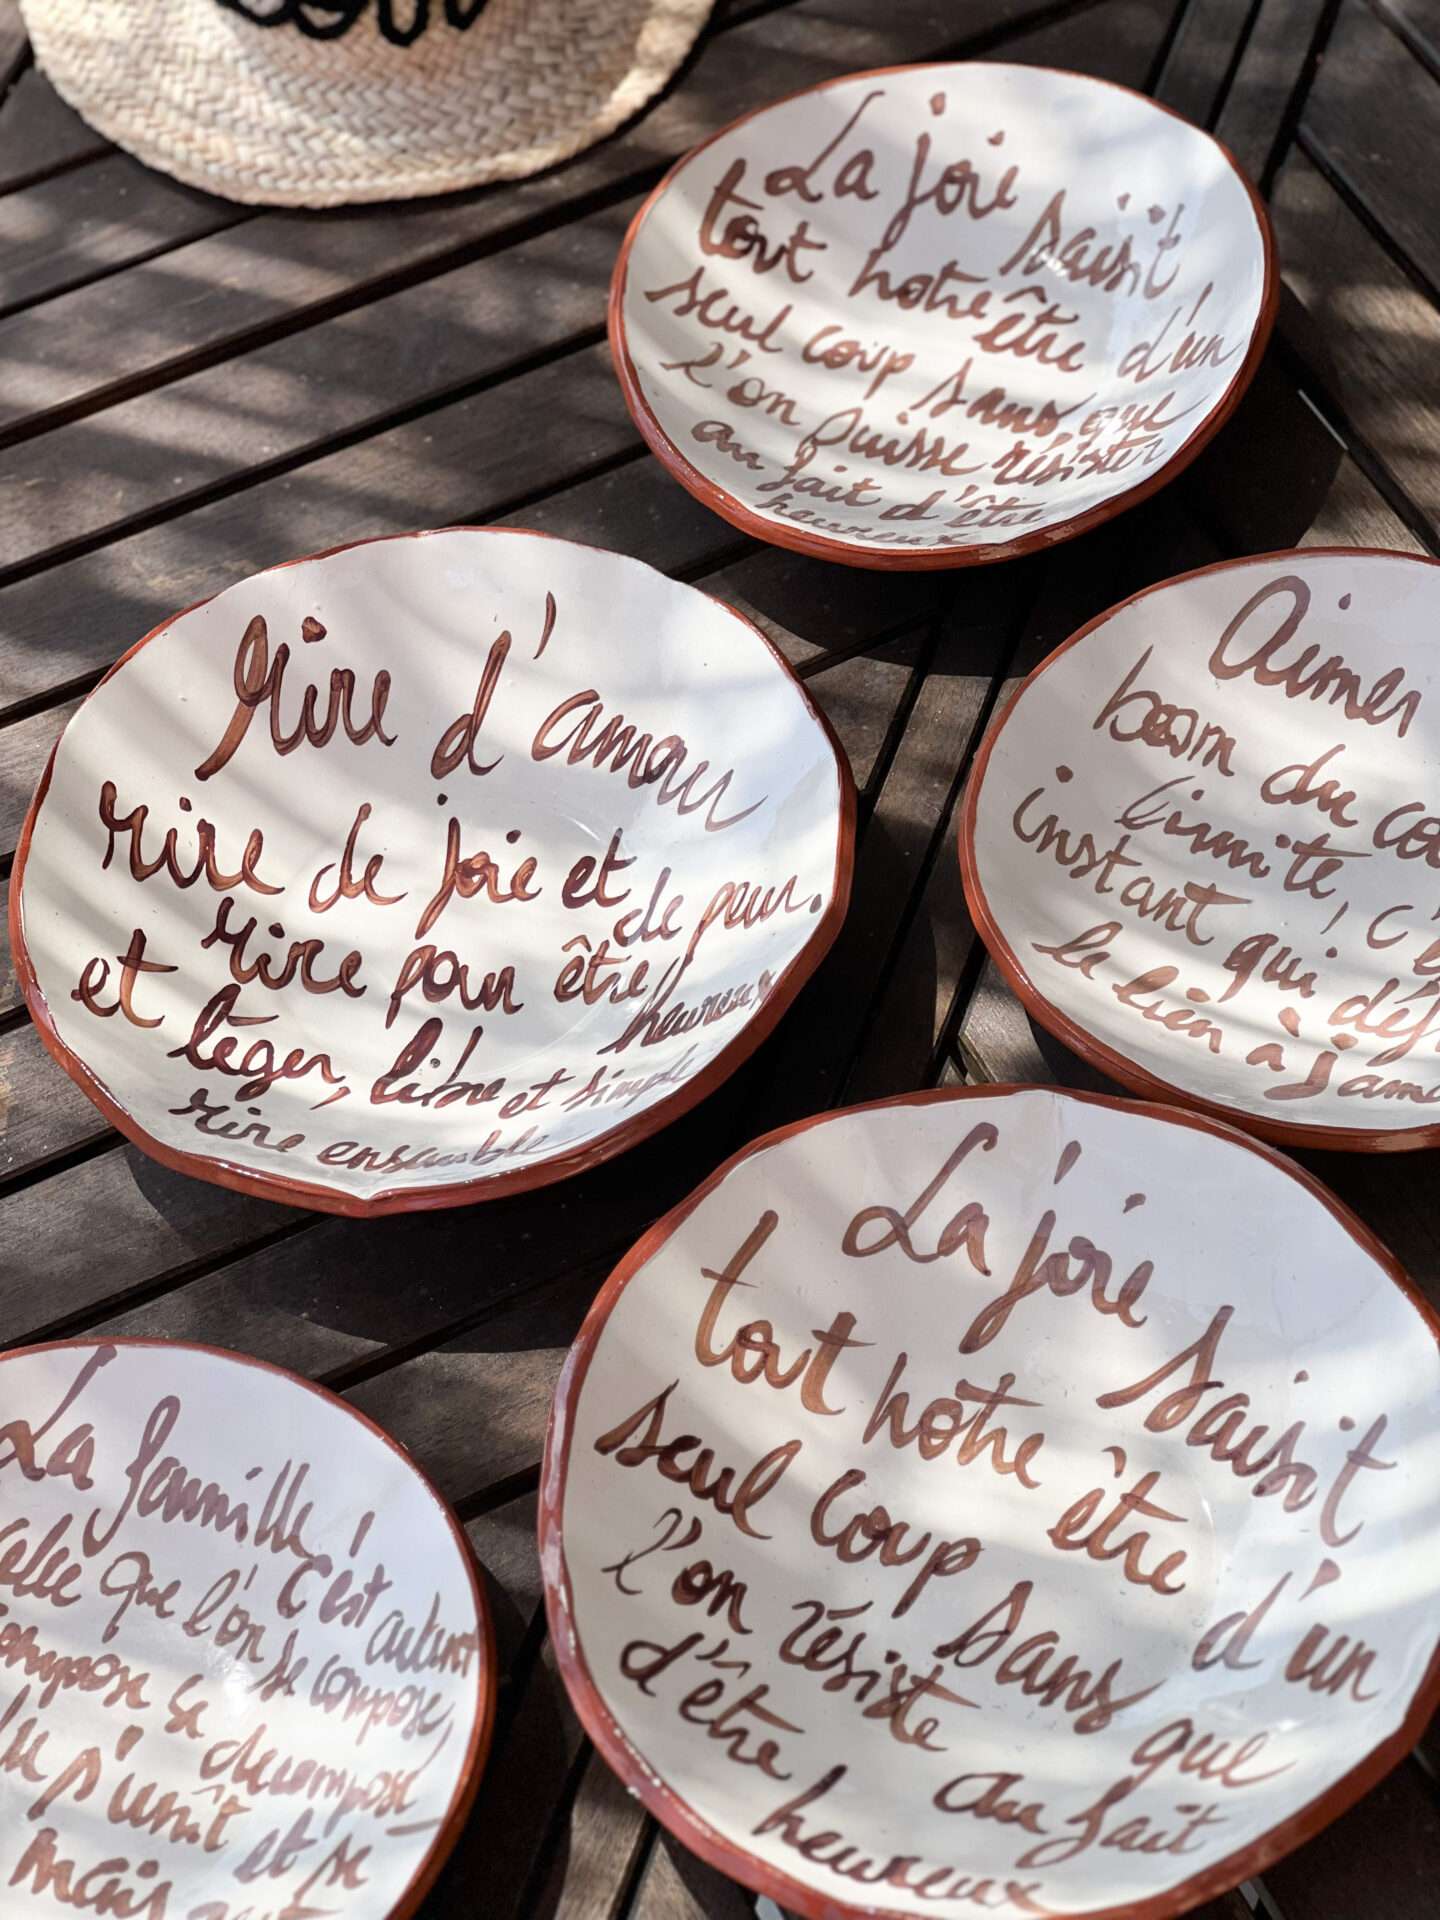 La joie saisit
tout notre être d'un
seul coup sans que
l'on puisse résister
au fait d'être
heureux
rire d'amour
rire de joie et de peur.
rire pour être heureux
et léger, libre et simple
rire ensemble
Aimer
beam du
limite, c'
instant qui
le lien à
La joie saisit
tout notre être d'un
seul coup sans que
l'on résiste au fait
d'être heureux
La famille, c'est autant
que l'on se compose,
se decompose
s'unit et se
mais